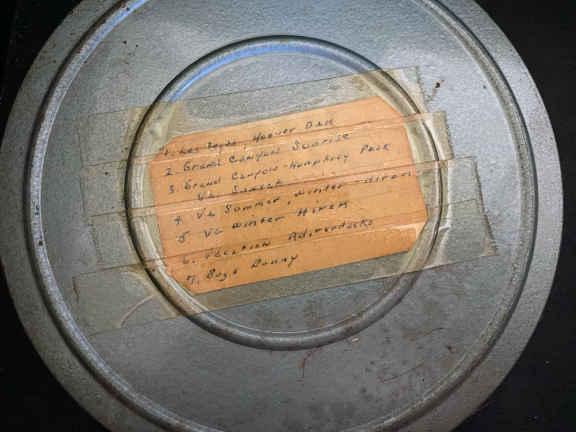 1. Las Vegas, Hoover Dam
2. Grand Canyon Sunrise
3. Grand Canyon - Humphrey Peak
Va Sunset
4. Va Summer, Winter -
5. Va Winter Hiram
6. Vacation Adirondacks
7. Bugs Bunny